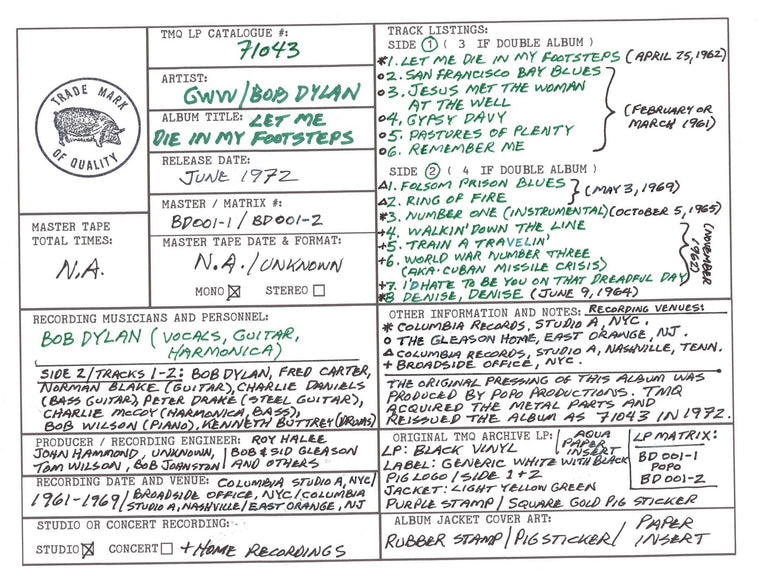 TRADE MARK
OF QUALITY
MASTER TAPE
TOTAL TIMES:
N.A.
TMQ LP CATALOGUE #:
71043
ARTIST:
GWW/BOB DYLAN
ALBUM TITLE: LET ME
DIE IN MY FOOTSTEPS
RELEASE DATE:
JUNE 1972
MASTER / MATRIX #:
BD001-1 / BD001-2
MASTER TAPE DATE & FORMAT:
N.A. / UNKNOWN
MONO ☒ STEREO ☐
TRACK LISTINGS:
SIDE ① ( 3 IF DOUBLE ALBUM )
*1. LET ME DIE IN MY FOOTSTEPS (APRIL 25, 1962)
o2. SAN FRANCISCO BAY BLUES
o3. JESUS MET THE WOMAN
AT THE WELL
o4. GYPSY DAVY
o5. PASTURES OF PLENTY
o6. REMEMBER ME
(FEBRUARY OR
MARCH 1961)
SIDE ② ( 4 IF DOUBLE ALBUM )
Δ1. FOLSOM PRISON BLUES
Δ2. RING OF FIRE
(MAY 3, 1969)
*3. NUMBER ONE (INSTRUMENTAL) (OCTOBER 5, 1965)
+4. WALKIN' DOWN THE LINE
+5. TRAIN A TRAVELIN'
+6. WORLD WAR NUMBER THREE
(AKA. CUBAN MISSILE CRISIS)
+7. I'D HATE TO BE YOU ON THAT DREADFUL DAY
(NOVEMBER
1962)
*8 DENISE, DENISE (JUNE 9, 1964)
RECORDING MUSICIANS AND PERSONNEL:
BOB DYLAN (VOCALS, GUITAR,
HARMONICA)
SIDE 2/TRACKS 1-2: BOB DYLAN, FRED CARTER,
NORMAN BLAKE (GUITAR), CHARLIE DANIELS
(BASS GUITAR), PETER DRAKE (STEEL GUITAR),
CHARLIE McCOY (HARMONICA, BASS),
BOB WILSON (PIANO), KENNETH BUTTREY (DRUMS)
PRODUCER / RECORDING ENGINEER: ROY HALEE
JOHN HAMMOND, UNKNOWN, / BOB & SID GLEASON
TOM WILSON, BOB JOHNSTON / AND OTHERS
RECORDING DATE AND VENUE: COLUMBIA STUDIO A, NYC/
1961-1969 / BROADSIDE OFFICE, NYC/COLUMBIA
STUDIO A, NASHVILLE / EAST ORANGE, NJ
STUDIO OR CONCERT RECORDING:
STUDIO ☒ CONCERT ☐ + HOME RECORDINGS
OTHER INFORMATION AND NOTES: RECORDING VENUES:
* COLUMBIA RECORDS, STUDIO A, NYC.
o THE GLEASON HOME, EAST ORANGE, NJ.
Δ COLUMBIA RECORDS, STUDIO A, NASHVILLE, TENN.
+ BROADSIDE OFFICE, NYC.
THE ORIGINAL PRESSING OF THIS ALBUM WAS
PRODUCED BY POPO PRODUCTIONS. TMQ
ACQUIRED THE METAL PARTS AND
REISSUED THE ALBUM AS 71043 IN 1972.
ORIGINAL TMQ ARCHIVE LP:
LP: BLACK VINYL
AQUA
PAPER
INSERT
LABEL: GENERIC WHITE WITH BLACK
PIG LOGO / SIDE 1+2
JACKET: LIGHT YELLOW GREEN
PURPLE STAMP / SQUARE GOLD PIG STICKER
LP MATRIX:
BD 001-1
POPO
BD 001-2
ALBUM JACKET COVER ART:
RUBBER STAMP / PIG STICKER / PAPER
INSERT